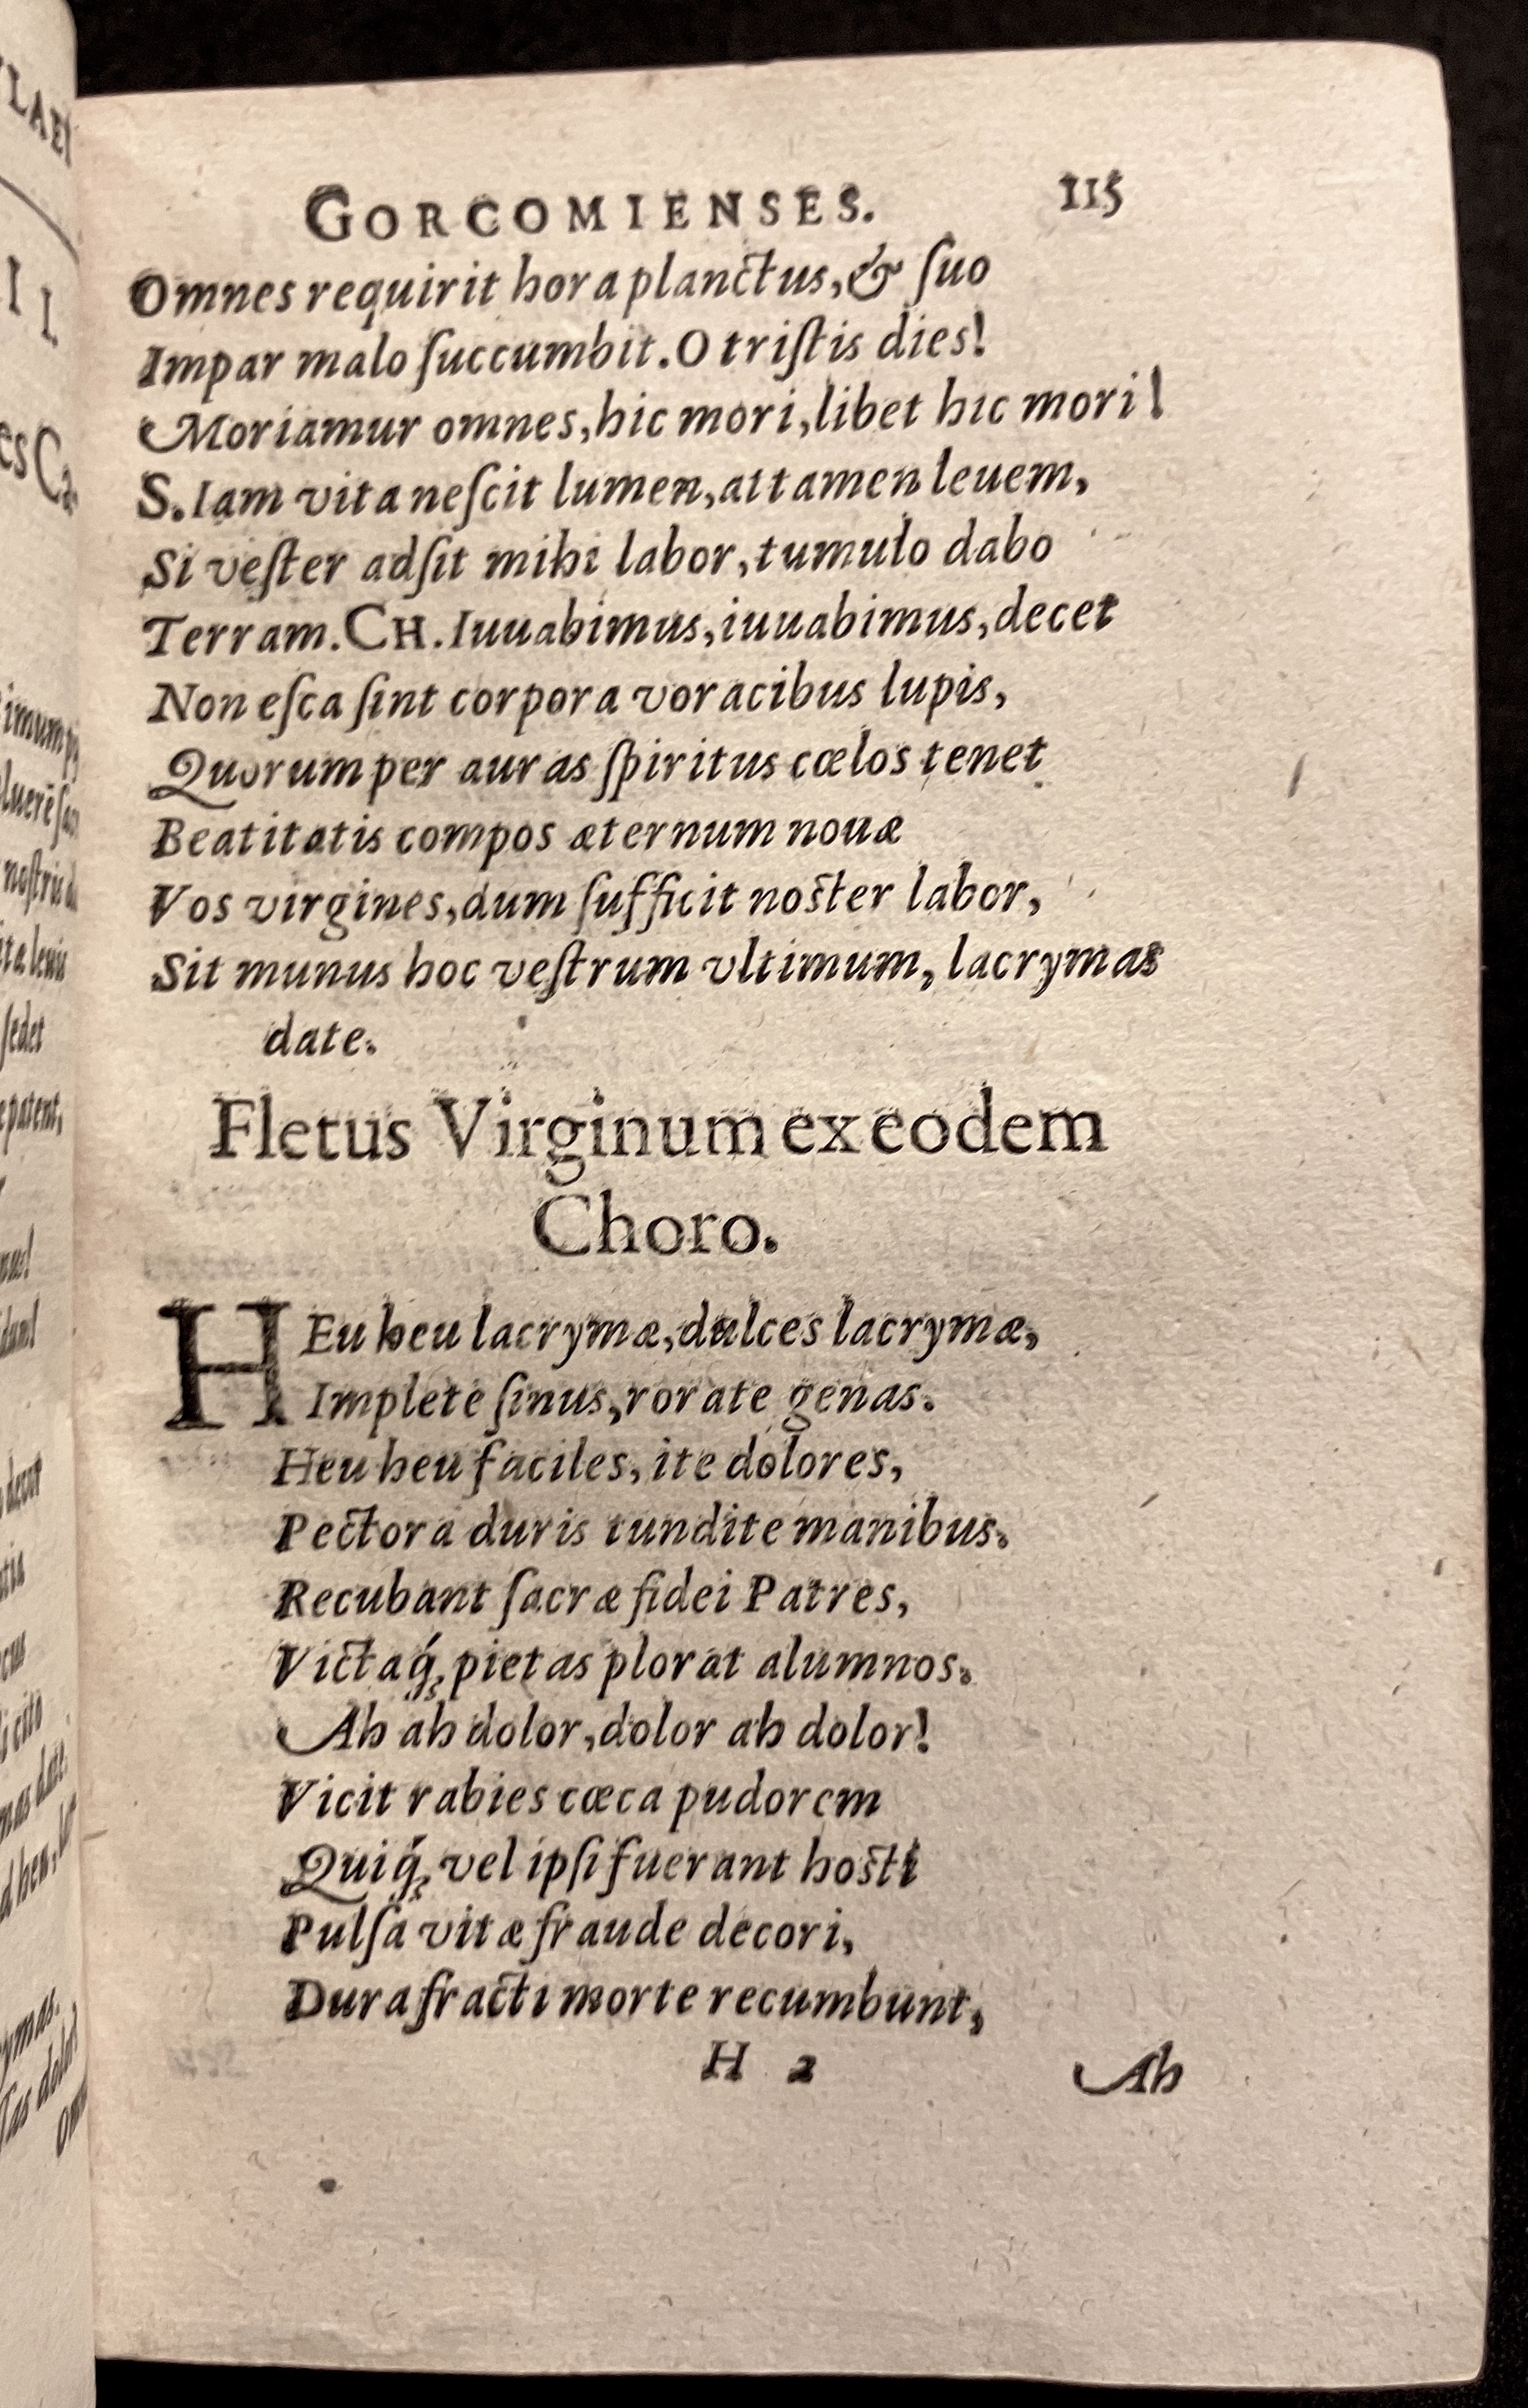 GORCOMIENSES. 115
Omnes requirit hora planctus, & ſuo
Impar malo ſuccumbit. O triſtis dies!
Moriamur omnes, hic mori, libet hic mori!
S. Iam vita neſcit lumen, attamen leuem,
Si veſter adſit mihi labor, tumulo dabo
Terram. CH. Iuuabimus, iuuabimus, decet
Non eſca ſint corpora voracibus lupis,
Quorum per auras ſpiritus cœlos tenet
Beatitatis compos æternum nouæ
Vos virgines, dum ſufficit noster labor,
Sit munus hoc veſtrum vltimum, lacrymas
date.
Fletus Virginum ex eodem
Choro.
HEu heu lacrymæ, dulces lacrymæ,
Implete ſinus, rorate genas.
Heu heu faciles, ite dolores,
Pectora duris tundite manibus.
Recubant ſacræ fidei Patres,
Victaq́; pietas plorat alumnos.
Ah ah dolor, dolor ah dolor!
Vicit rabies cœca pudorem
Quiq́; vel ipſi fuerant hosti
Pulſa vitæ fraude decori,
Dura fracti morte recumbunt,
H 2 Ah